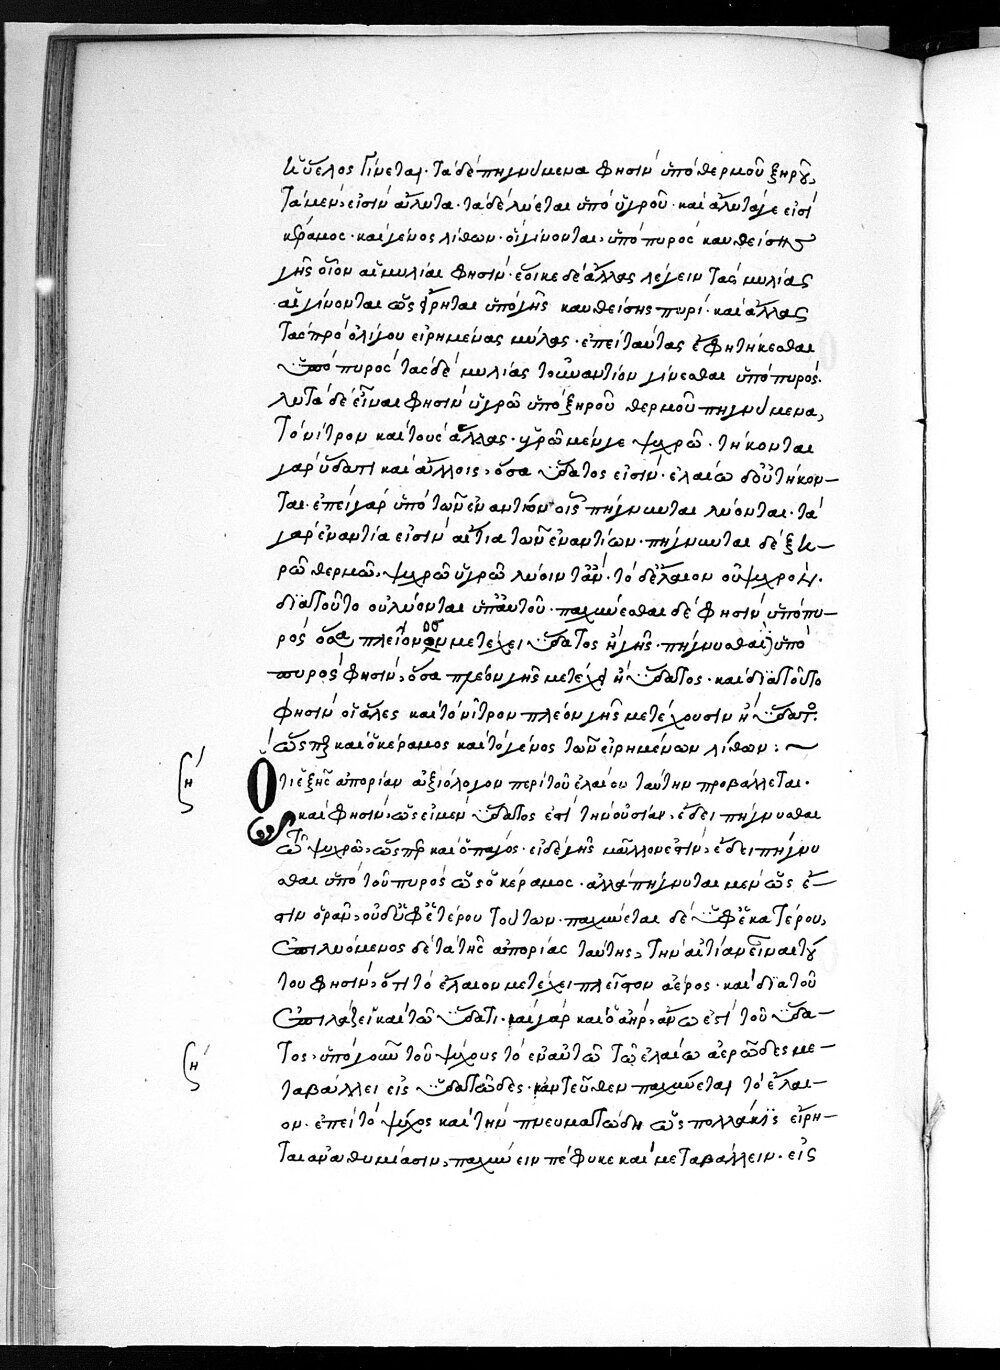 ἡ ὕελος γίνεται· τὰ δὲ πηγνύμενα φησὶν ὑπὸ θερμοῦ ξηροῦ,
τὰ μὲν, εἰσὶν ἄλυτα· τὰ δὲ λύεται ὑπὸ ὑγροῦ· καὶ ἄλυτα γε εἰσὶ
κέραμος· καὶ γένος λίθων· οἳ γίνονται, ὑπὸ πυρὸς καυθείσης
γῆς οἷον αἱ μυλίαι φησίν· ἔοικε δὲ ἄλλας λέγειν τὰς μυλίας
αἳ γίνονται ὡς εἴρηται ὑπὸ γῆς καυθείσης πυρί· καὶ ἄλλας
τὰς πρὸ ὀλίγου εἰρημένας μύλας· ἐπεὶ ταύτας ἔφη τήκεσθαι
ὑπὸ πυρὸς τὰς δὲ μυλίας τοὐναντίον γίνεσθαι ὑπὸ πυρός.
λυτὰ δὲ εἶναι φησὶν ὑγρῷ ὑπὸ ξηροῦ θερμοῦ πηγνύμενα,
τὸ νίτρον καὶ τοὺς ἅλας· ὑγρῷ μέν γε ψυχρῷ· τήκονται
γὰρ ὕδατι καὶ ἄλλοις, ὅσα ὕδατος εἰσίν· ἐλαίῳ δὲ οὐ τήκον-
ται· ἐπεὶ γὰρ ὑπὸ τῶν ἐναντίον οἷς πήγνυται λύονται· τὰ
γὰρ ἐναντία εἰσὶν αἴτια τῶν ἐναντίων· πήγνυται δὲ ξη-
ρῷ θερμῷ, ψυχρῷ ὑγρῷ λύοιντ' ἄν· τὸ δὲ ἔλαιον οὐ ψυχρόν.
διατοῦτο οὐ λύονται ὑπ' αὐτοῦ· παχύνεσθαι δὲ φησὶν ὑπὸ πυ-
ρὸς ὅσα πλεῖον μετέχει ὕδατος ἢ γῆς· πήγνυσθαι ὑπὸ
πυρὸς φησὶν, ὅσα πλέον γῆς μετέχει ἢ ὕδατος· καὶ διατοῦτο
φησὶν οἱ ἅλες καὶ τὸ νίτρον πλέον γῆς μετέχουσιν ἢ ὕδατος.
ὥσπερ καὶ ὁ κέραμος καὶ τὸ γένος τῶν εἰρημένων λίθων :~
Ὅτι ἑξῆς ἀπορίαν ἀξιόλογον περὶ τοῦ ἐλαίου ταύτην προβάλλεται.
καὶ φησὶν, ὡς εἰ μὲν ὕδατος ἐστὶ τὴν οὐσίαν, ἔδει πήγνυσθαι
τῷ ψυχρῷ, ὥσπερ καὶ ὁ πάγος· εἰ δὲ γῆς μᾶλλον ἐστὶν, ἔδει πήγνυ
σθαι ὑπὸ τοῦ πυρὸς ὡς ὁ κέραμος· ἀλλὰ πήγνυται μὲν ὡς ἔ-
στιν ὁρᾶν, οὐδ' ὑφ' ἑτέρου τούτων· παχύνεται δὲ ὑφ' ἑκατέρου,
ἐπιλυόμενος δὲ τὰ τῆς ἀπορίας ταύτης, τὴν αἰτίαν εἶναι τού
του φησὶν, ὅτι τὸ ἔλαιον μετέχει πλεῖστον ἀέρος· καὶ διατοῦ
ἐπιπλάζει καὶ τῷ ὕδατι· καὶ γὰρ καὶ ὁ ἀὴρ, ἄνω ἐστὶ τοῦ ὕδα-
τος, ὑπὸ γοῦν τοῦ ψύχους τὸ ἐν αὐτῷ τῷ ἐλαίῳ ἀερῶδες με-
ταβάλλει εἰς ὑδατῶδες· κἀντεῦθεν παχύνεται τὸ ἔλαι-
ον· ἐπεὶ τὸ ψύχος καὶ τὴν πνευματώδη ὡς πολλάκις εἴρη-
ται ἀναθυμίασιν, παχύνειν πέφυκε καὶ μεταβάλλειν· εἰς